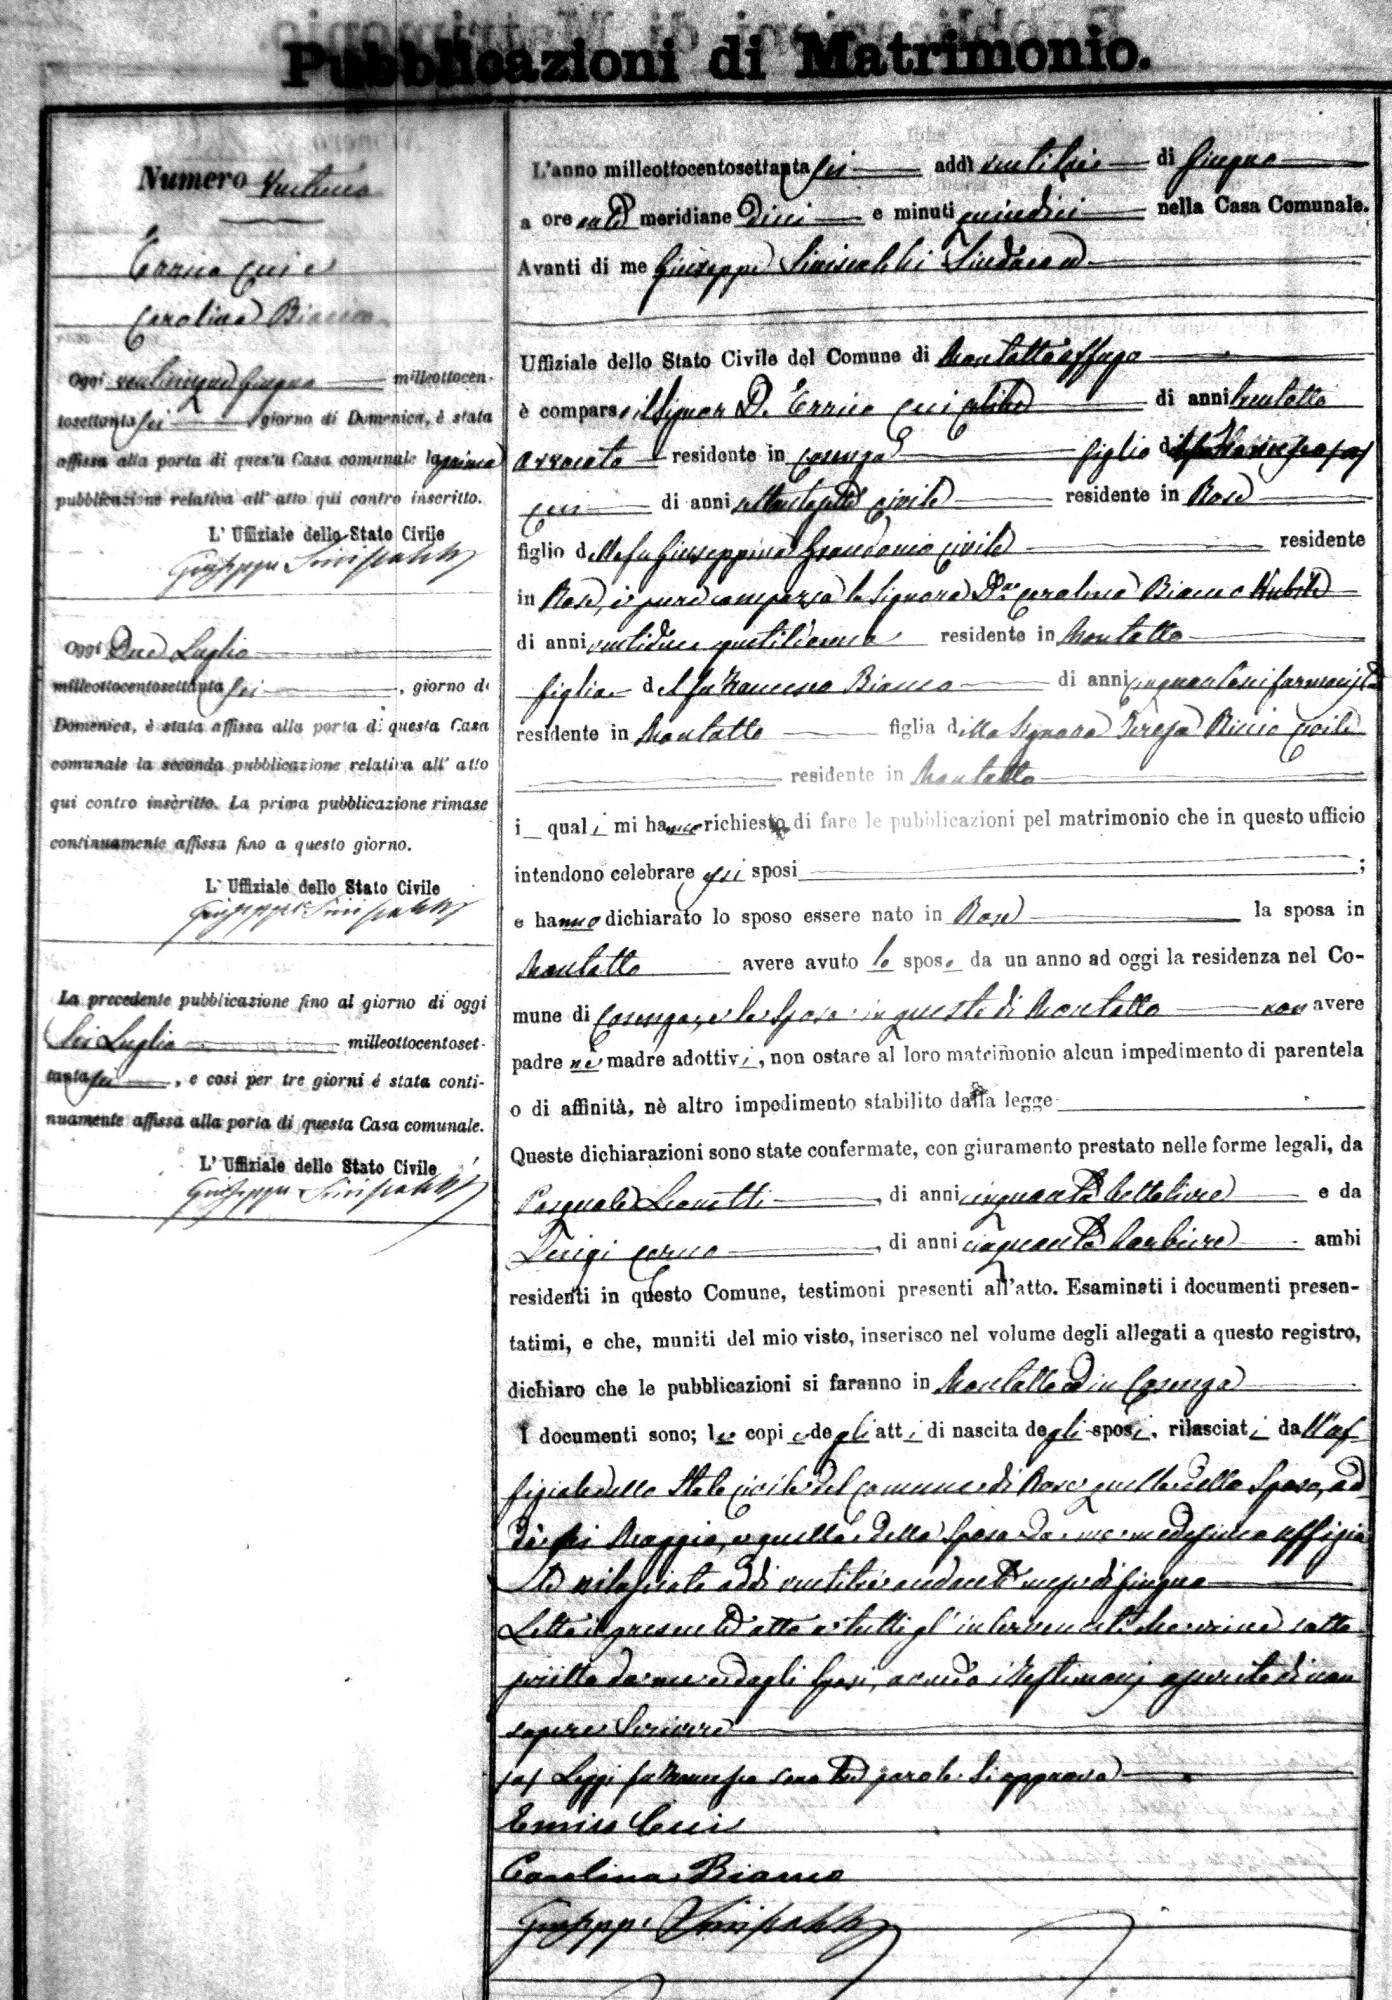 Pubblicazioni di Matrimonio.
Numero
Errico Cuci e
Carolina Bianco
Oggi venticinque Giugno milleottocen-
tosettanta sei giorno di Domenica, è stata
affissa alla porta di questa Casa comunale la prima
pubblicazione relativa all' atto qui contro inscritto.
L' Uffiziale dello Stato Civile
Giuseppe Siniscalchi
Oggi Due Luglio
milleottocentosettanta sei, giorno di
Domenica, è stata affissa alla porta di questa Casa
comunale la seconda pubblicazione relativa all' atto
qui contro inscritto. La prima pubblicazione rimase
continuamente affissa fino a questo giorno.
L' Uffiziale dello Stato Civile
Giuseppe Siniscalchi
La precedente pubblicazione fino al giorno di oggi
Sei Luglio milleottocentoset-
tanta sei, e così per tre giorni é stata conti-
nuamente affissa alla porta di questa Casa comunale.
L' Uffiziale dello Stato Civile
Giuseppe Siniscalchi
L'anno milleottocentosettanta sei addì ventitrè di Giugno
a ore meridiane Dieci e minuti quindici nella Casa Comunale.
Avanti di me Giuseppe Siniscalchi Sindaco
Uffiziale dello Stato Civile del Comune di Montalto Uffugo
è comparso il Signor D. Errico Cuci celibe di anni trentotto
avvocato residente in Cosenza figlio di
Cuci di anni settantasette civile residente in Rose
figlio della fu Giuseppina Grandonio civile residente
in Rose, è pure comparsa la Signora D.na Carolina Bianco Nubile
di anni ventidue gentildonna residente in Montalto
figlia del fu Francesco Bianco di anni farmacista
residente in Montalto figlia della Signora Teresa Riccio Civile
residente in Montalto
i quali mi hanno richiesto di fare le pubblicazioni pel matrimonio che in questo ufficio
intendono celebrare essi sposi ;
e hanno dichiarato lo sposo essere nato in Rose la sposa in
Montalto avere avuto lo sposo da un anno ad oggi la residenza nel Co-
mune di Cosenza, e la Sposa in questo di Montalto non avere
padre nè madre adottivi, non ostare al loro matrimonio alcun impedimento di parentela
o di affinità, nè altro impedimento stabilito dalla legge
Queste dichiarazioni sono state confermate, con giuramento prestato nelle forme legali, da
Pasquale Leonetti, di anni cinquanta bettoliere e da
Luigi Corno, di anni cinquanta barbiere ambi
residenti in questo Comune, testimoni presenti all'atto. Esaminati i documenti presen-
tatimi, e che, muniti del mio visto, inserisco nel volume degli allegati a questo registro,
dichiaro che le pubblicazioni si faranno in Montalto ed in Cosenza
I documenti sono; le copie degli atti di nascita degli sposi, rilasciati dall'uf-
fiziale dello Stato Civile del Comune di Rose quella dello Sposo, ad-
dì sei Maggio, e quella della Sposa da me medesimo uffizia-
le rilasciata addì ventitrè andante mese di Giugno
Letto il presente atto a tutti gl'intervenuti viene sotto-
scritto da me e dagli Sposi, avendo i Testimonj asserito di non
sapere Scrivere
(a) Leggi fu Francesco parole Si approva
Errico Cuci
Carolina Bianco
Giuseppe Siniscalchi